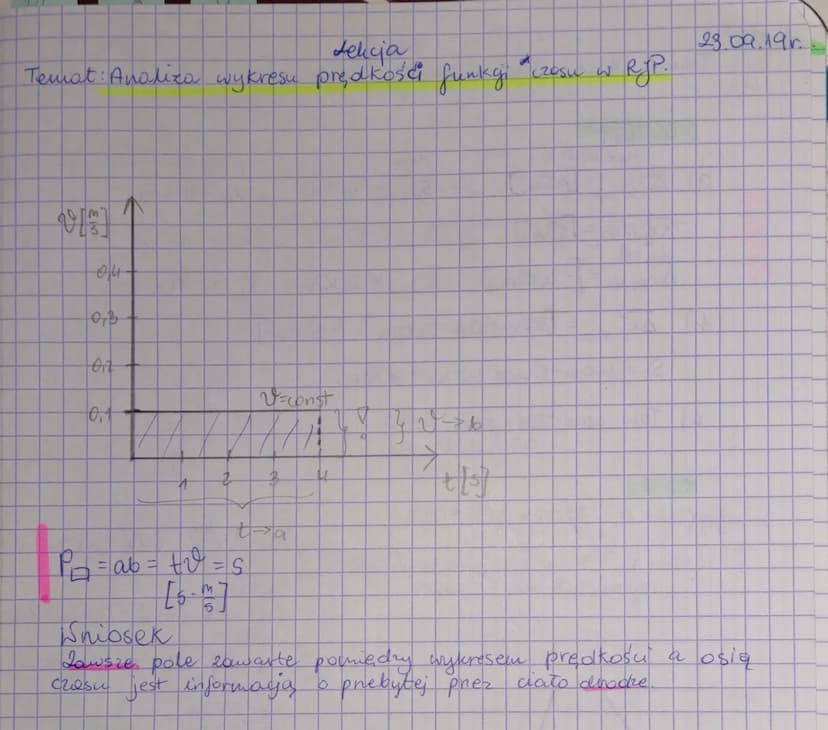 Lekcja
23.09.19r.
Temat: Analiza wykresu prędkości funkcji czasu w RJP.
ϑ[m/s]
0,4
0,3
0,2
ϑ=const
0,1
} ! } ϑ→b
1 2 3 4
t[s]
t→a
P▭ = ab = tϑ = s
[s·m/s]
Wniosek
Zawsze pole zawarte pomiędzy wykresem prędkości a osią
czasu jest informacją o przebytej przez ciało drodze.